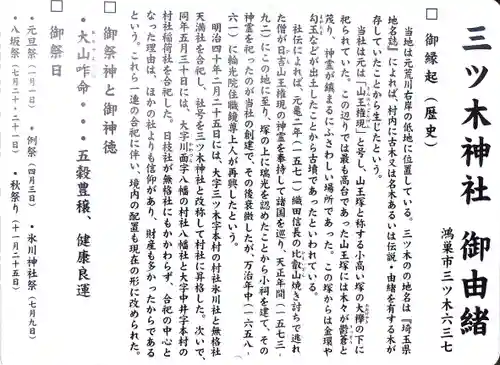 三ツ木神社 御由緒
鴻巣市三ツ木六三七
□御縁起(歴史)
当地は元荒川右岸の低地に位置している。三ツ木のの地名は『埼玉県
地名誌』によれば、村内に古木又は名木あるいは伝説・由緒を有する木が
存していたことから生じたという。
当社は元は「山王権現」と号し、山王塚と称する小高い塚の大欅の下に
祀られていた。この辺りでは最も高台であった山王塚には木々が鬱蒼と
茂り、神霊が鎮まるにふさわしい場所であった。この塚からは金環や
勾玉などが出土したことから古墳であったといわれている。
社伝によれば、元亀二年(一五七一)織田信長の比叡山焼き討ちで逃れ
た僧が日吉山王権現の神霊を奉持して諸国を巡り、天正年間(一五七三-
九二)にこの地に至り、塚の上に瑞光を認めたことから小祠を建て、その
神霊を祀ったのが当社の創建で、その後衰微したが、万治年中(一六五八-
六一)に輪光院住職鏡尊上人が再興したという。
明治四十年二月二十五日には、大字三ツ木字本村の村社氷川社と無格社
天満社を合祀し、社号を三ツ木神社と改称して村社に昇格した。次いで、
同年五月三十日には、大字川面字八幡の村社八幡社と大字中井字本村の
村社稲荷社を合祀した。日枝社が無格社にもかかわらず、合祀の中心と
なった理由は、ほかの社よりも信仰があり、財産も多かったからである
という。これら一連の合祀に伴い、境内の配置も現在の形に改められた。
□御祭神と御神徳
・大山咋命・・・五穀豊穣、健康良運
□御祭日
・元旦祭(一月一日) ・例祭(四月三日) ・氷川神社祭(七月九日)
・八坂祭(七月二十・二十一日) ・秋祭り(十一月二十五日)